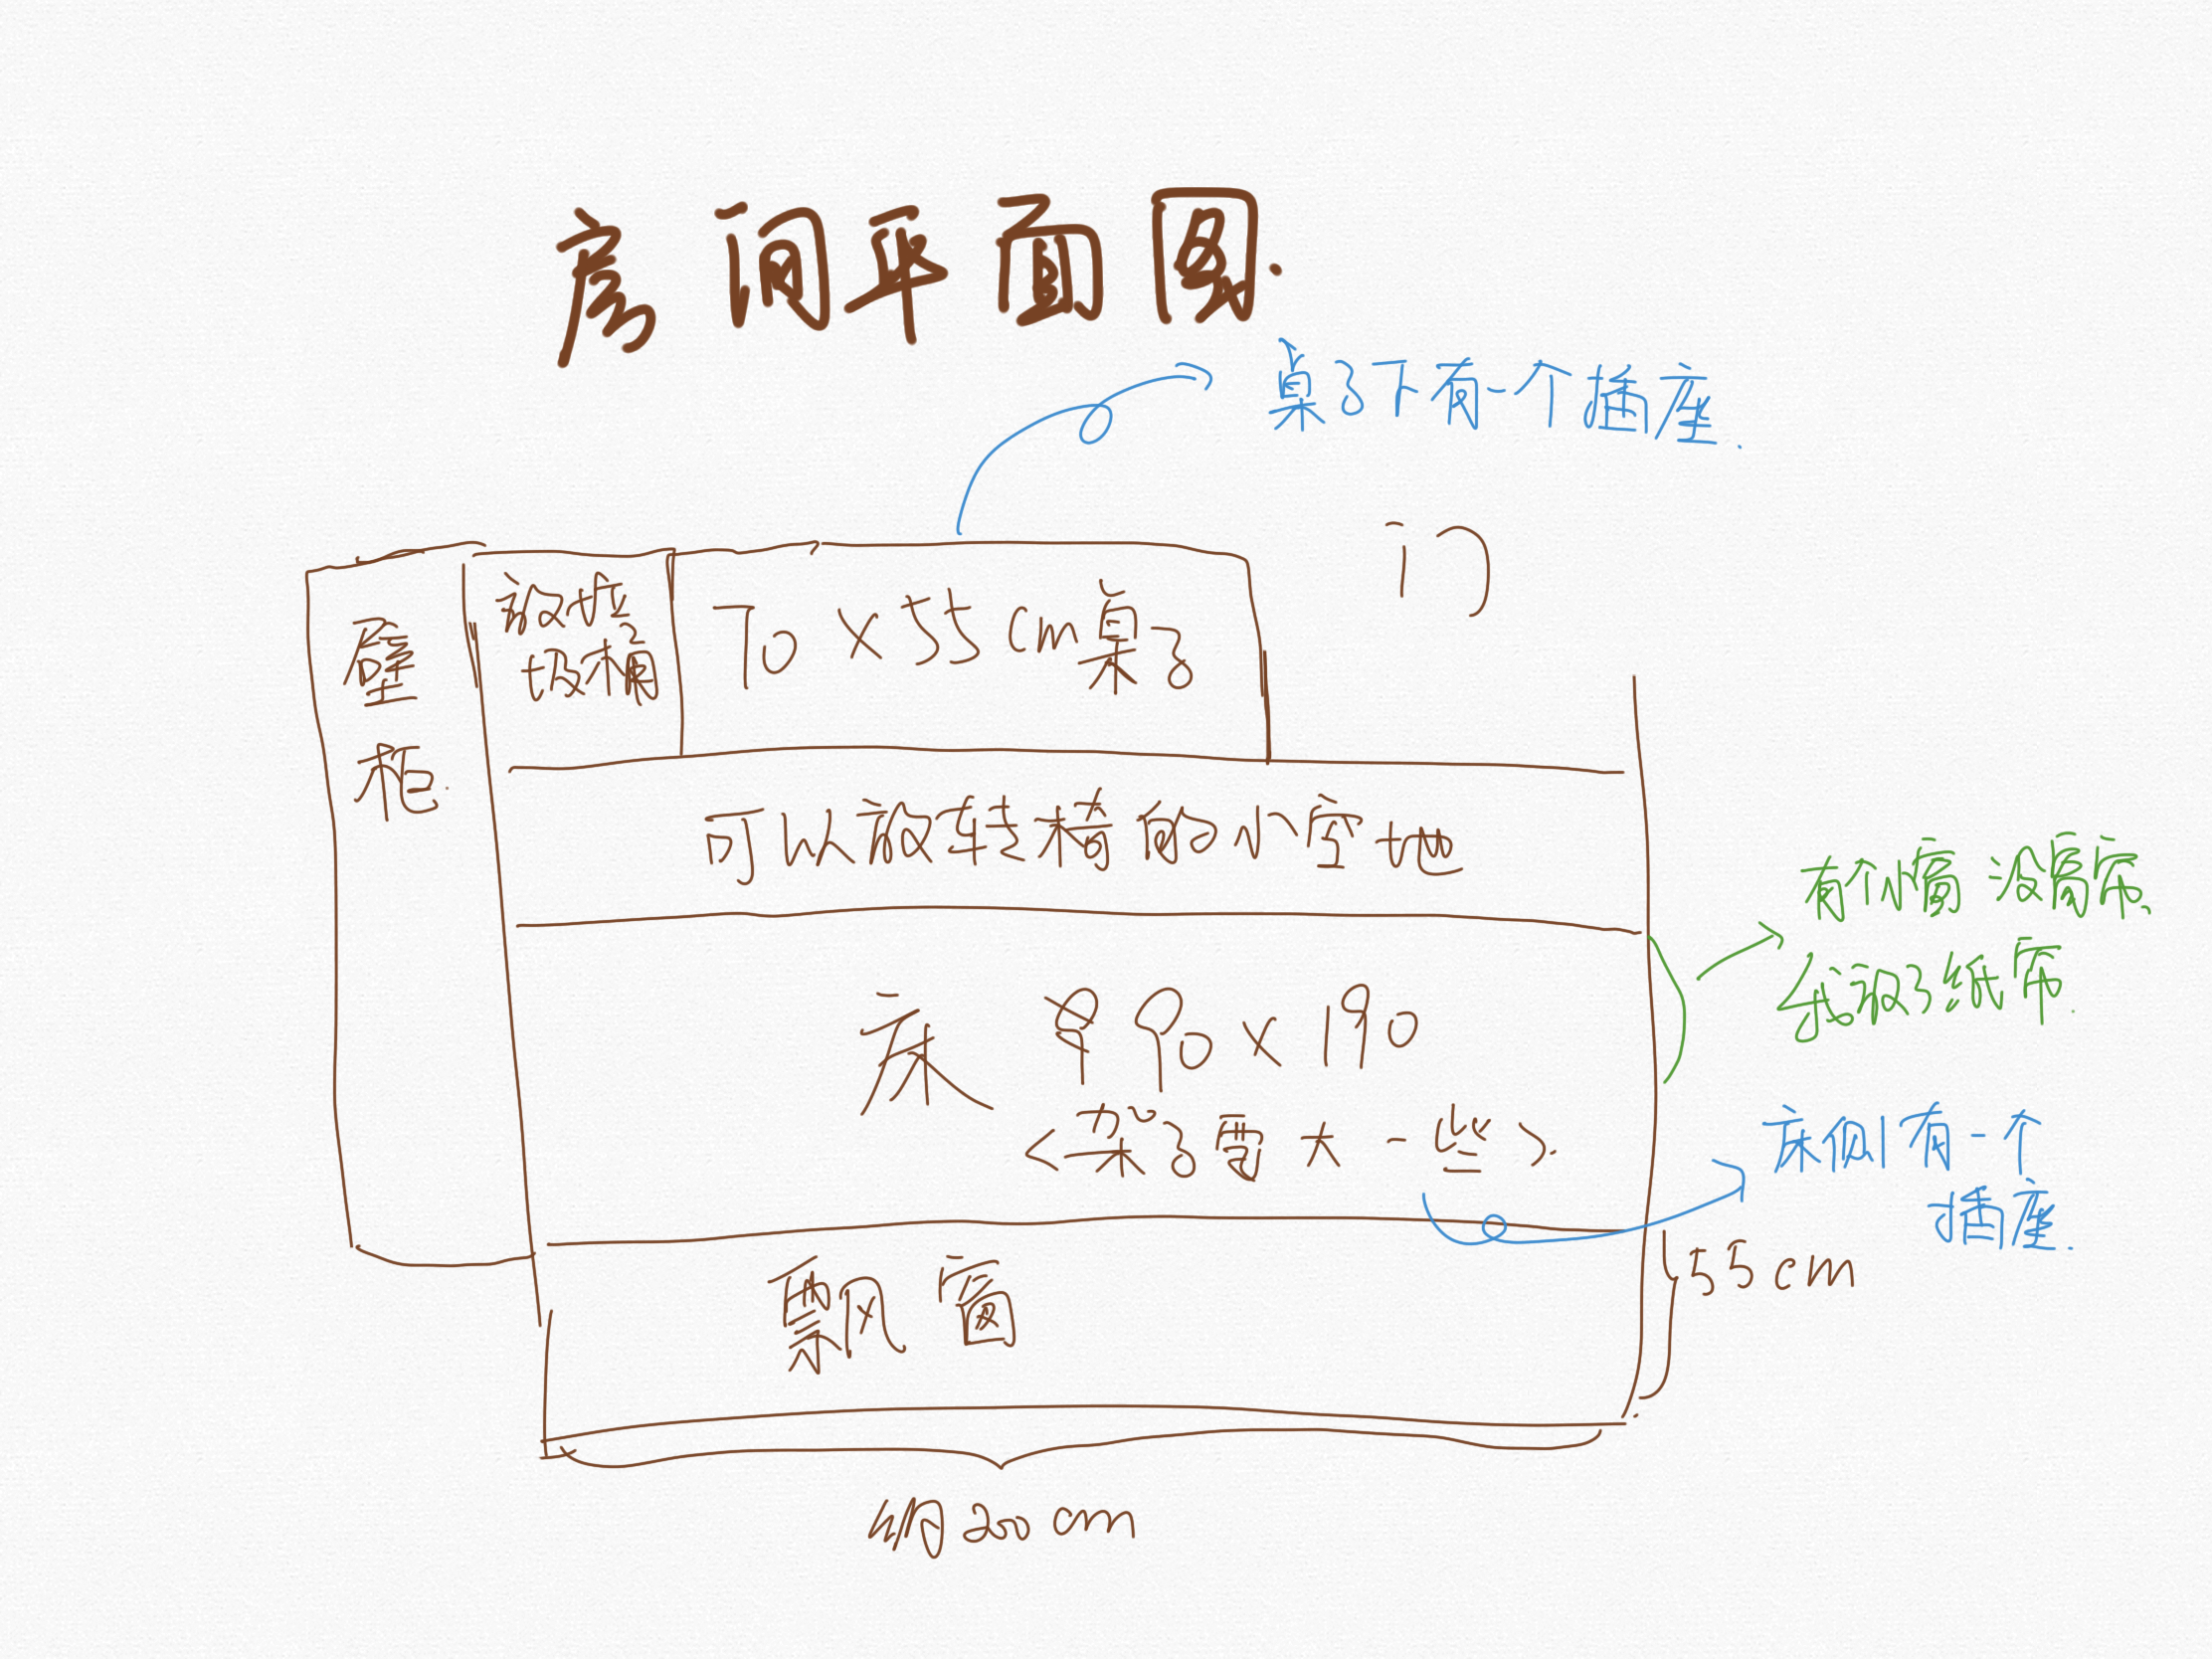 房间平面图.
桌子下有一个插座.
门
壁柜.
放垃
圾桶
70×55cm桌子
可以放转椅的小空地
有个小窗 没窗帘.
我设了纸帘.
床 90×190
<架子要大一些>.
床侧有一个
插座.
飘窗
55cm
约200cm